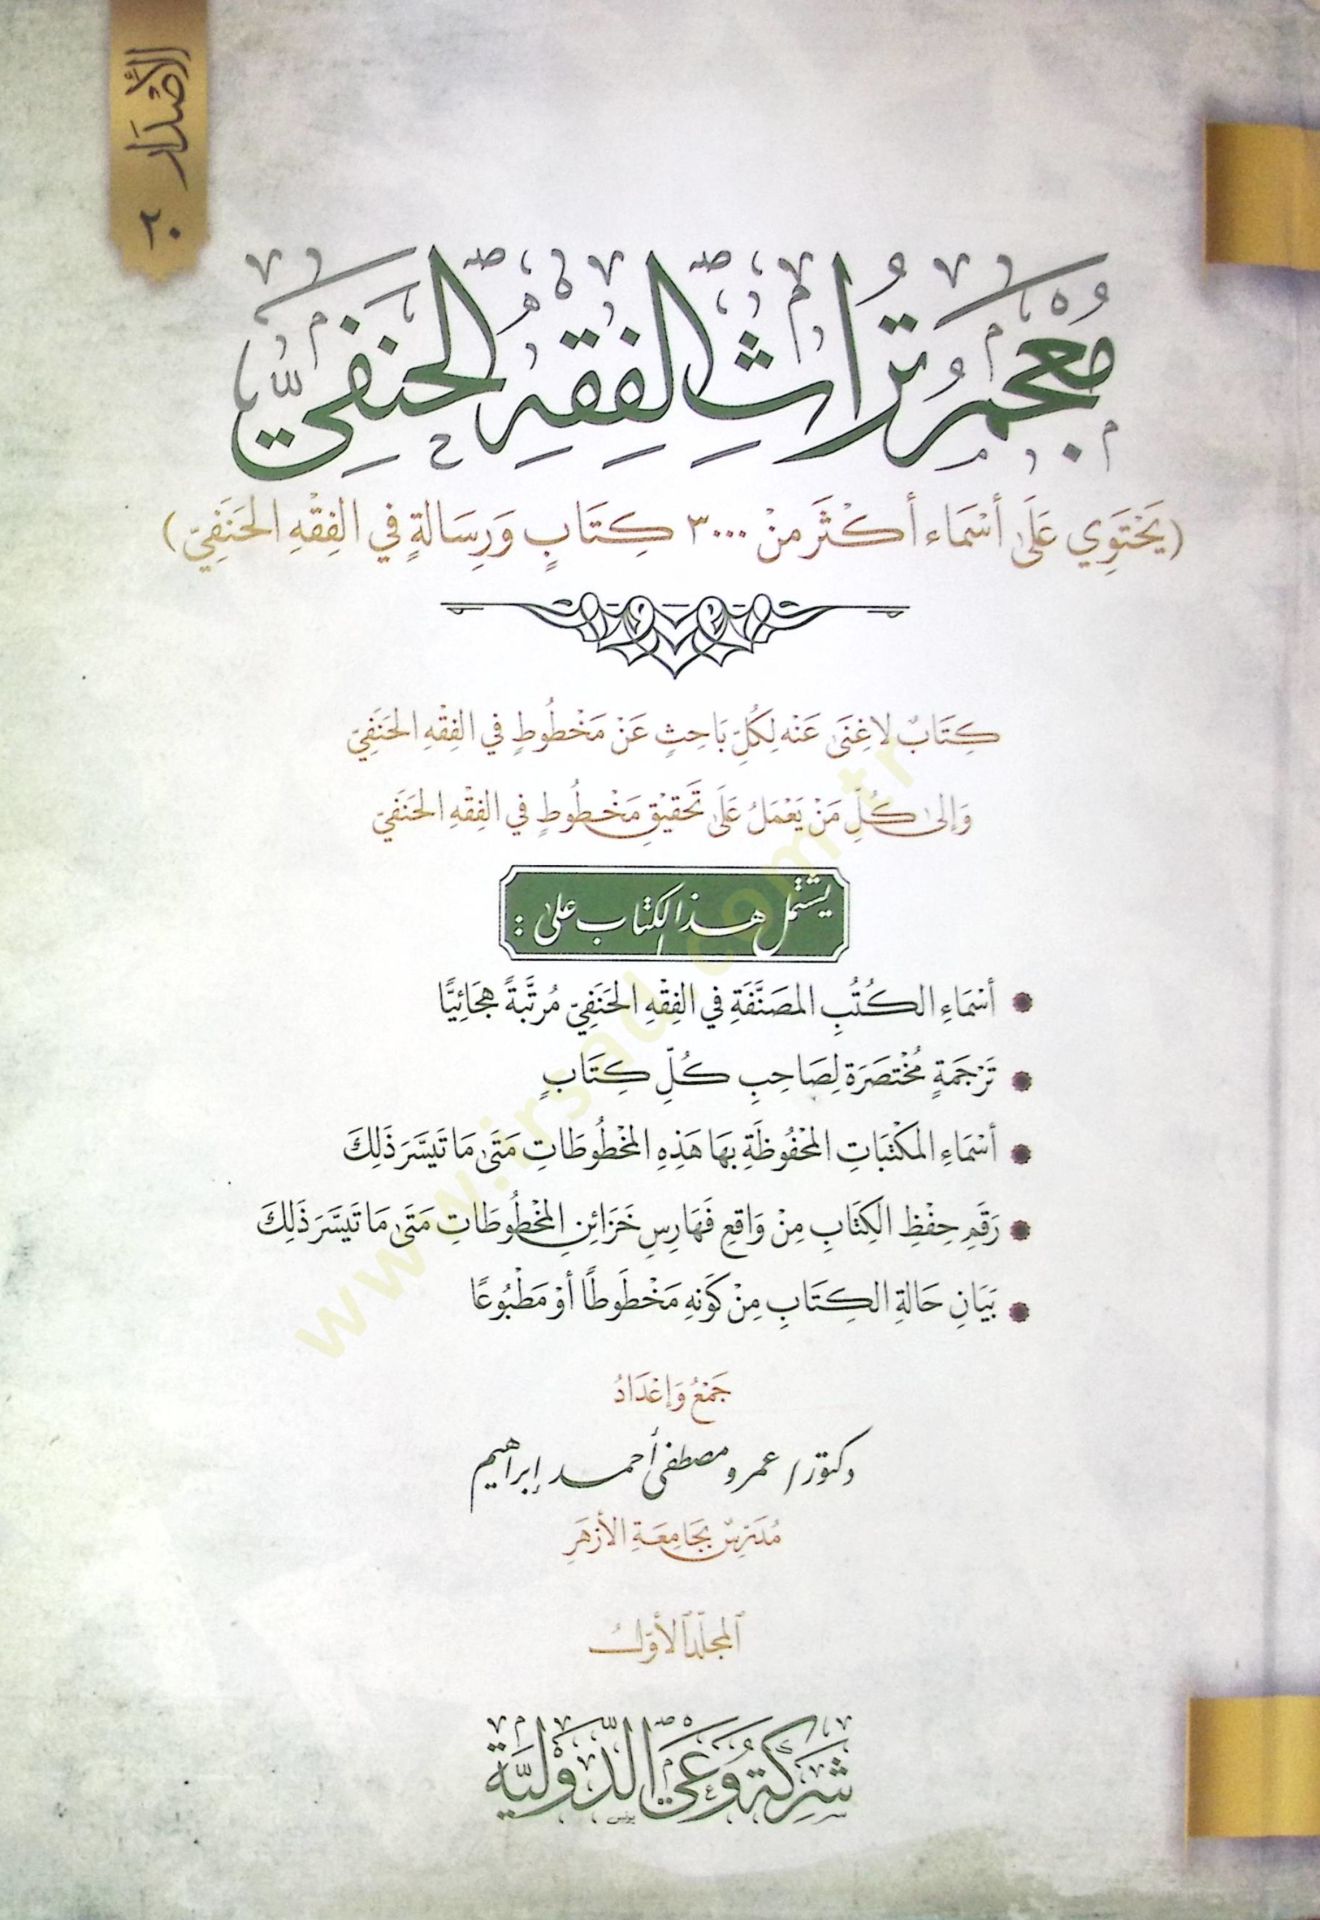 الأصدار
٢٠
معجم تراث الفقه الحنفي
(يَحْتَوِي عَلَى أسْمَاء أكْثَر مِنْ ٣٠٠٠ كِتَابٍ وَرِسَالةٍ في الفِقْهِ الحَنَفِيّ)
كِتَابٌ لا غِنَى عَنْه لِكُلِّ بَاحِثٍ عَنْ مَخْطُوطٍ في الفِقْهِ الحَنَفِيّ
وَإلى كُلِّ مَنْ يَعْمَلُ عَلَى تَحقِيْقِ مَخْطُوطٍ في الفِقْهِ الحَنَفِيّ
يشتمل هذا الكتاب على :
أسْمَاءِ الكُتُبِ المصَنَّفَةِ في الفِقْهِ الحَنَفِيّ مُرتَّبَةً هِجَائِيًّا
تَرْجَمَةٍ مُخْتَصَرَة لِصَاحِبِ كُلِّ كِتَابٍ
أسْمَاءِ المَكْتَبَاتِ المَحْفُوظَةِ بهَا هَذِهِ المَخْطُوطَاتِ مَتَى مَا تَيَسَّرَ ذَلِكَ
رَقَمِ حِفْظِ الكِتَابِ مِنْ وَاقِعِ فَهَارِسِ خَزَائِنِ المَخْطُوطَاتِ مَتَى مَا تَيَسَّرَ ذَلِكَ
بَيَانِ حَالةِ الكِتَابِ مِنْ كَونِهِ مَخْطَوطاً أوْ مَطْبُوعًا
جَمْعُ وَإعْدَادُ
دكتور/ عمرو مصطفى أحمد إبراهيم
مُدَرِّسٌ بجَامِعَةِ الأزهَرِ
المجلّد الأوّل
شَرِكَة وَعَي الدَّوليَّة
www.irsad.com.tr